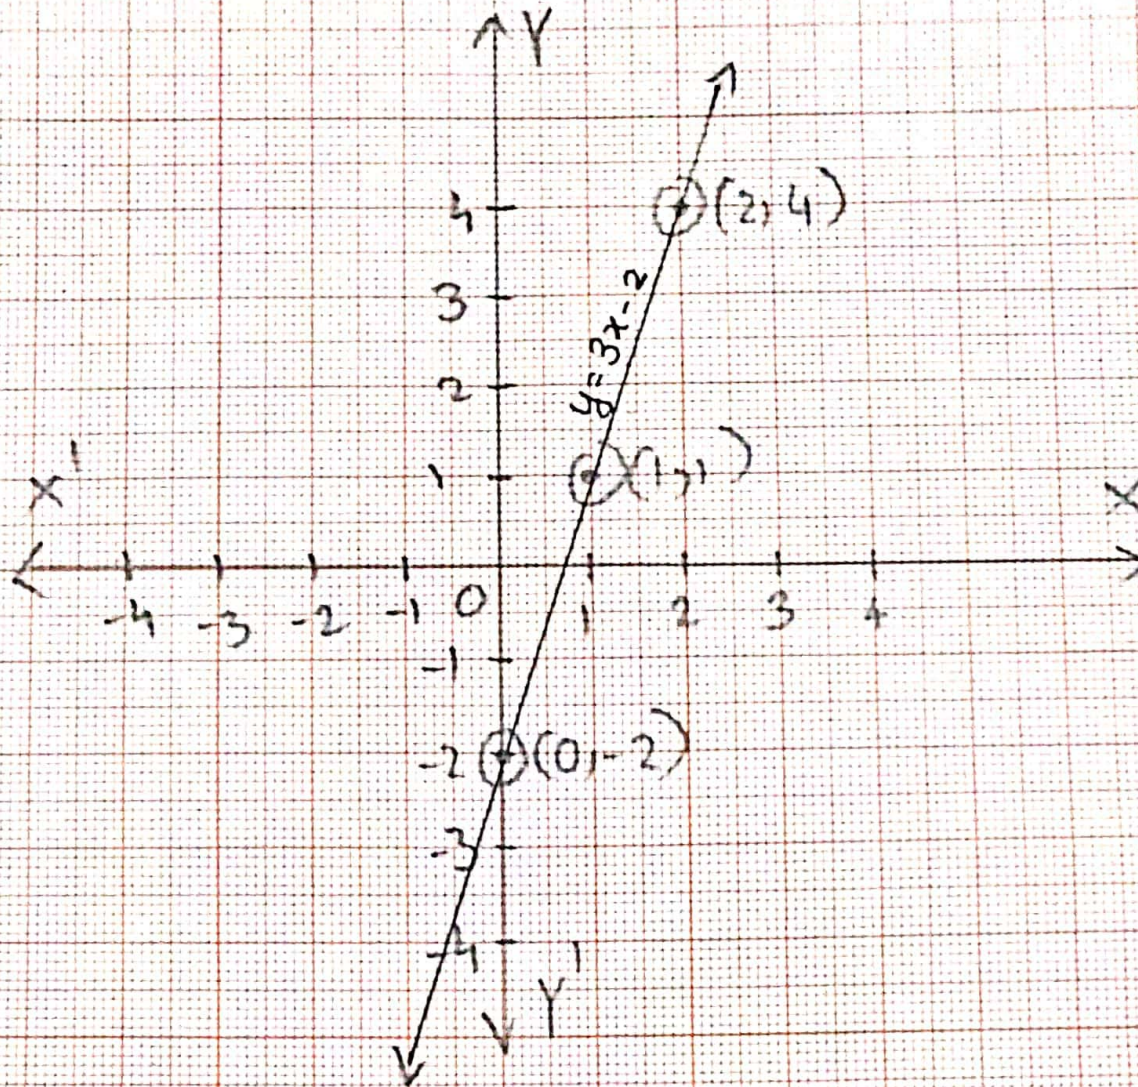 Y
(2, 4)
4
3
y=3x-2
2
(1,1)
1
X'
X
-4 -3 -2 -1 0 1 2 3 4
-1
-2 (0,-2)
-3
-4
Y'